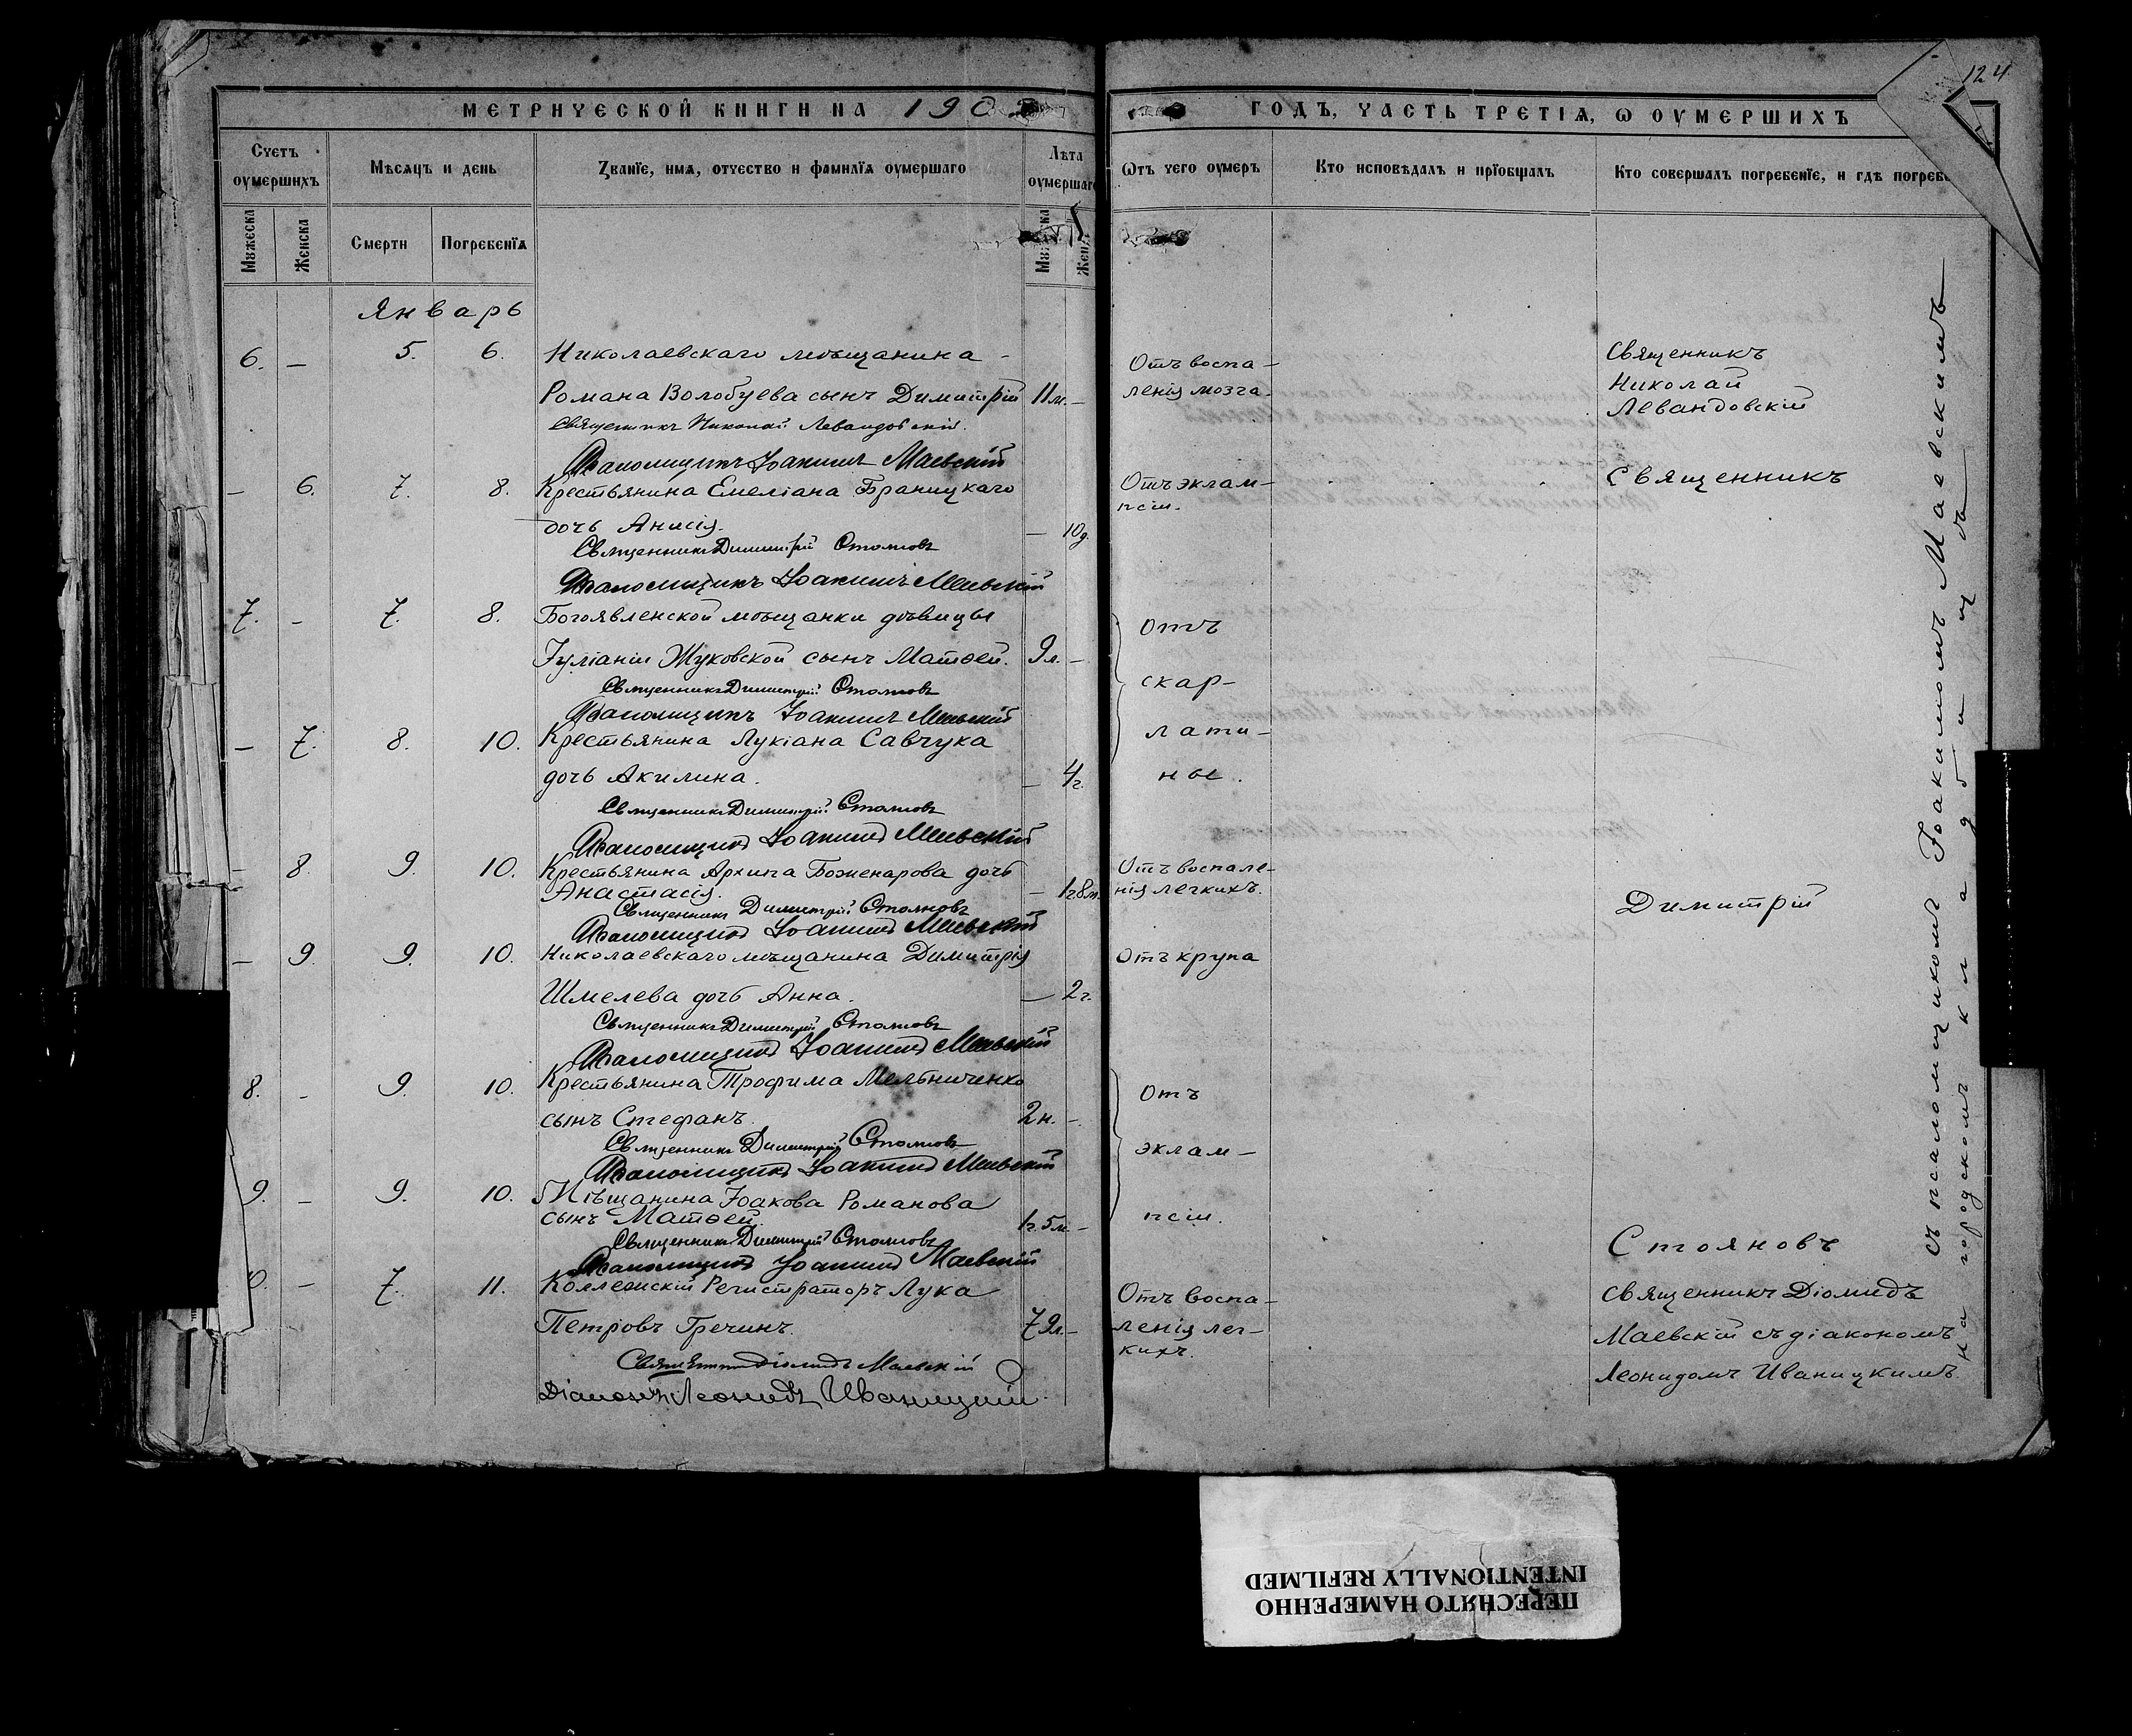 124
МЕТРИЧЕСКОЙ КНИГИ НА 190
ГОДЪ, ЧАСТЬ ТРЕТІѦ, Ѡ ОУМЕРШИХЪ
Счетъ оумершихъ
Мѣсяцъ и день
Званїе, имѧ, отчество и фамилїѧ оумершаго
Лѣта оумершаго
Ѿтъ чего оумеръ
Кто исповѣдалъ и прїобщалъ
Кто совершалъ погребенїе, и гдѣ погребе
Мꙋжеска
Женска
Смерти
Погребенїѧ
Январь
6. — 5. 6. Николаевскаго мѣщанина
Романа Волобуева сынъ Димитрій 11 м. —
Отъ воспа-
ленія мозга.
Священникъ
Николай
Левандовскій
Священникъ Николай Левандовскій.
Псаломщикъ Іоакимъ Маевскій
— 6. 7. 8. Крестьянина Емеліана Браницкаго
дочь Анисія. — 10 д.
Отъ эклам-
псіи.
Священникъ
Священникъ Димитрій Стояновъ
Псаломщикъ Іоакимъ Маевскій
7. — 7. 8. Богоявленской мѣщанки дѣвицы
Іуліаніи Жуковской сынъ Матѳей. 9 л. —
Священникъ Димитрій Стояновъ
Псаломщикъ Іоакимъ Маевскій
— 7. 8. 10. Крестьянина Лукіана Савчука
дочь Акилина. — 4 г.
Отъ
скар-
лати-
ны.
Священникъ Димитрій Стояновъ
Псаломщикъ Іоакимъ Маевскій
— 8. 9. 10. Крестьянина Архипа Боженарова дочь
Анастасія. — 1 г. 8 м.
Отъ воспале-
нія легкихъ.
Димитрій
Священникъ Димитрій Стояновъ
Псаломщикъ Іоакимъ Маевскій
— 9. 9. 10. Николаевскаго мѣщанина Димитрія
Шмелева дочь Анна. — 2 г.
Отъ крупа
Священникъ Димитрій Стояновъ
Псаломщикъ Іоакимъ Маевскій
8. — 9. 10. Крестьянина Трофима Мельниченко
сынъ Стефанъ. 2 н. —
Священникъ Димитрій Стояновъ
Псаломщикъ Іоакимъ Маевскій
9. — 9. 10. Мѣщанина Іоакова Романова
сынъ Матѳей. 1 г. 5 м. —
Отъ
эклам-
псіи.
Стояновъ
Священникъ Димитрій Стояновъ
Псаломщикъ Іоакимъ Маевскій
0. — 7. 11. Коллежскій Регистраторъ Лука
Петровъ Гречинъ. 79 л. —
Отъ воспа-
ленія лег-
кихъ.
Священникъ Діомидъ
Маевскій съ діакономъ
Леонидомъ Иваницкимъ.
Священникъ Діомидъ Маевскій
Діаконъ Леонидъ Иваницкій
съ псаломщикомъ Іоакимомъ Маевскимъ
на городскомъ кладбищѣ
ПЕРЕСНЯТО НАМЕРЕННО
INTENTIONALLY REFILMED